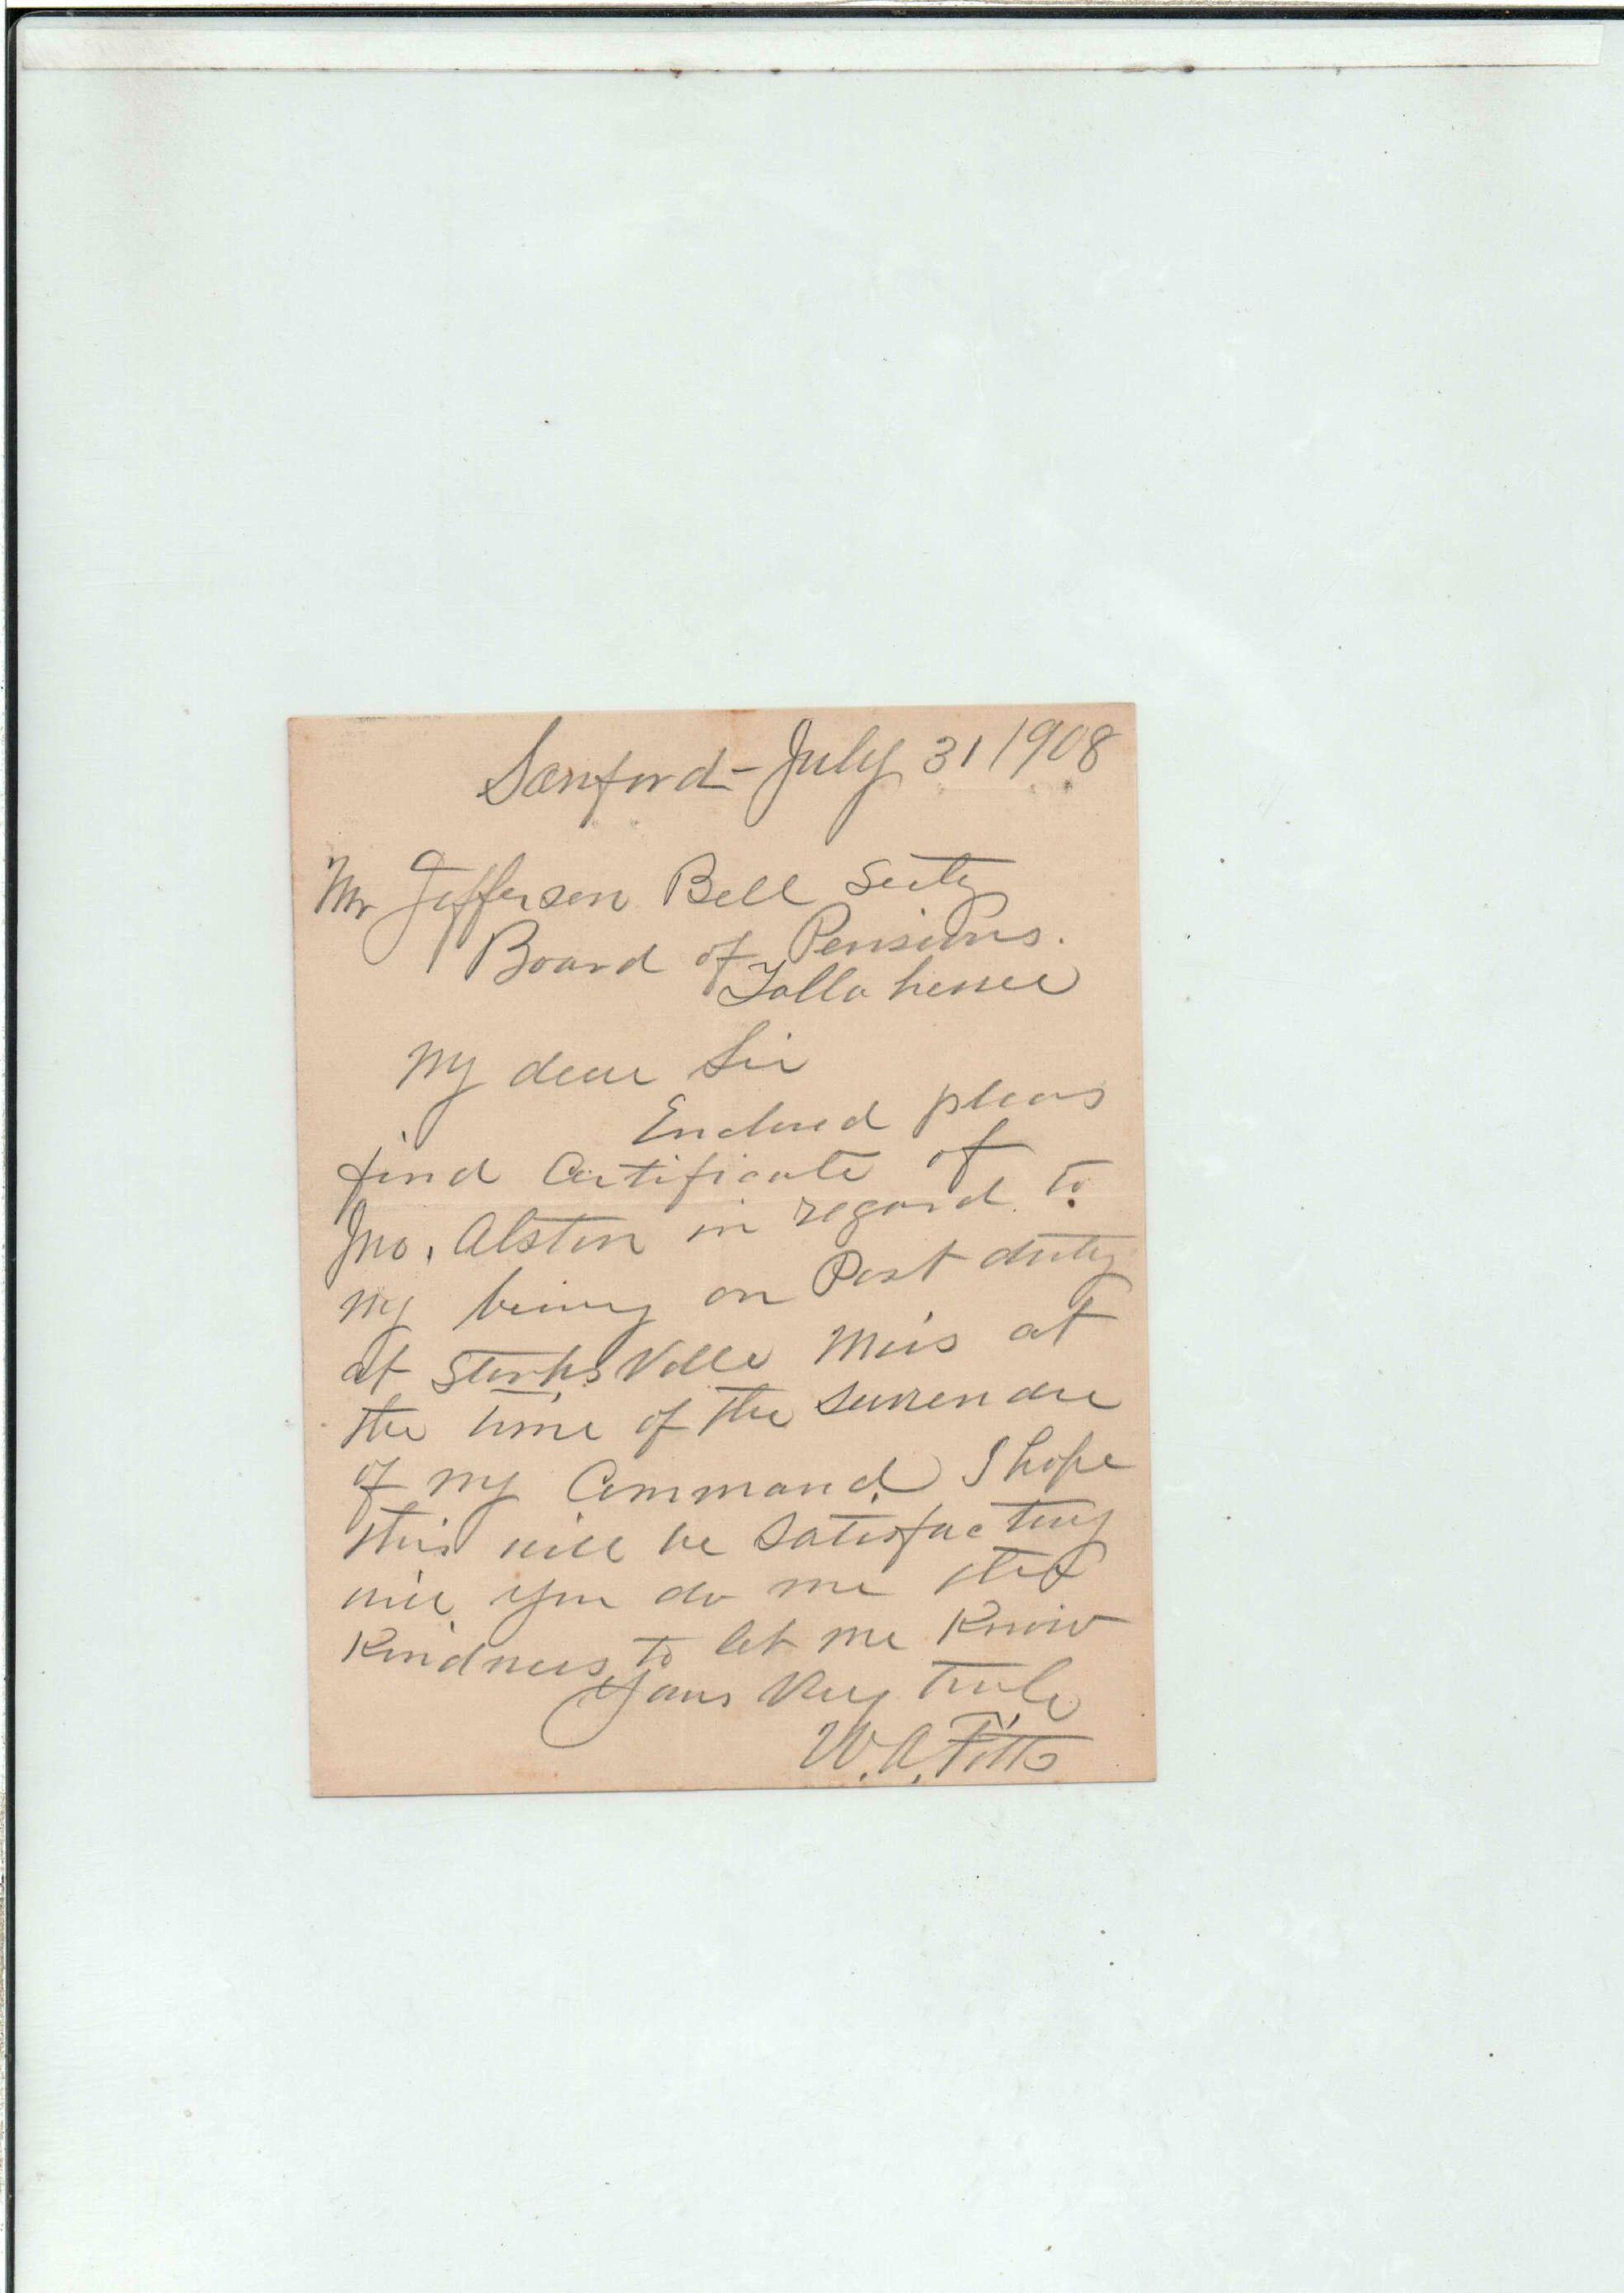 Sanford - July 31 1908
Mr Jefferson Bell Secty
Board of Pensions.
Tallahassee
My dear Sir
Enclosed pleas
find Certificate of
Jno. Alston in regard to
my being on Post duty
at Starksville Miss at
the time of the surrender
of my Command I hope
this will be satisfactory
will you do me the
Kindness to let me Know
Yours Very truly
W. A. Fitts